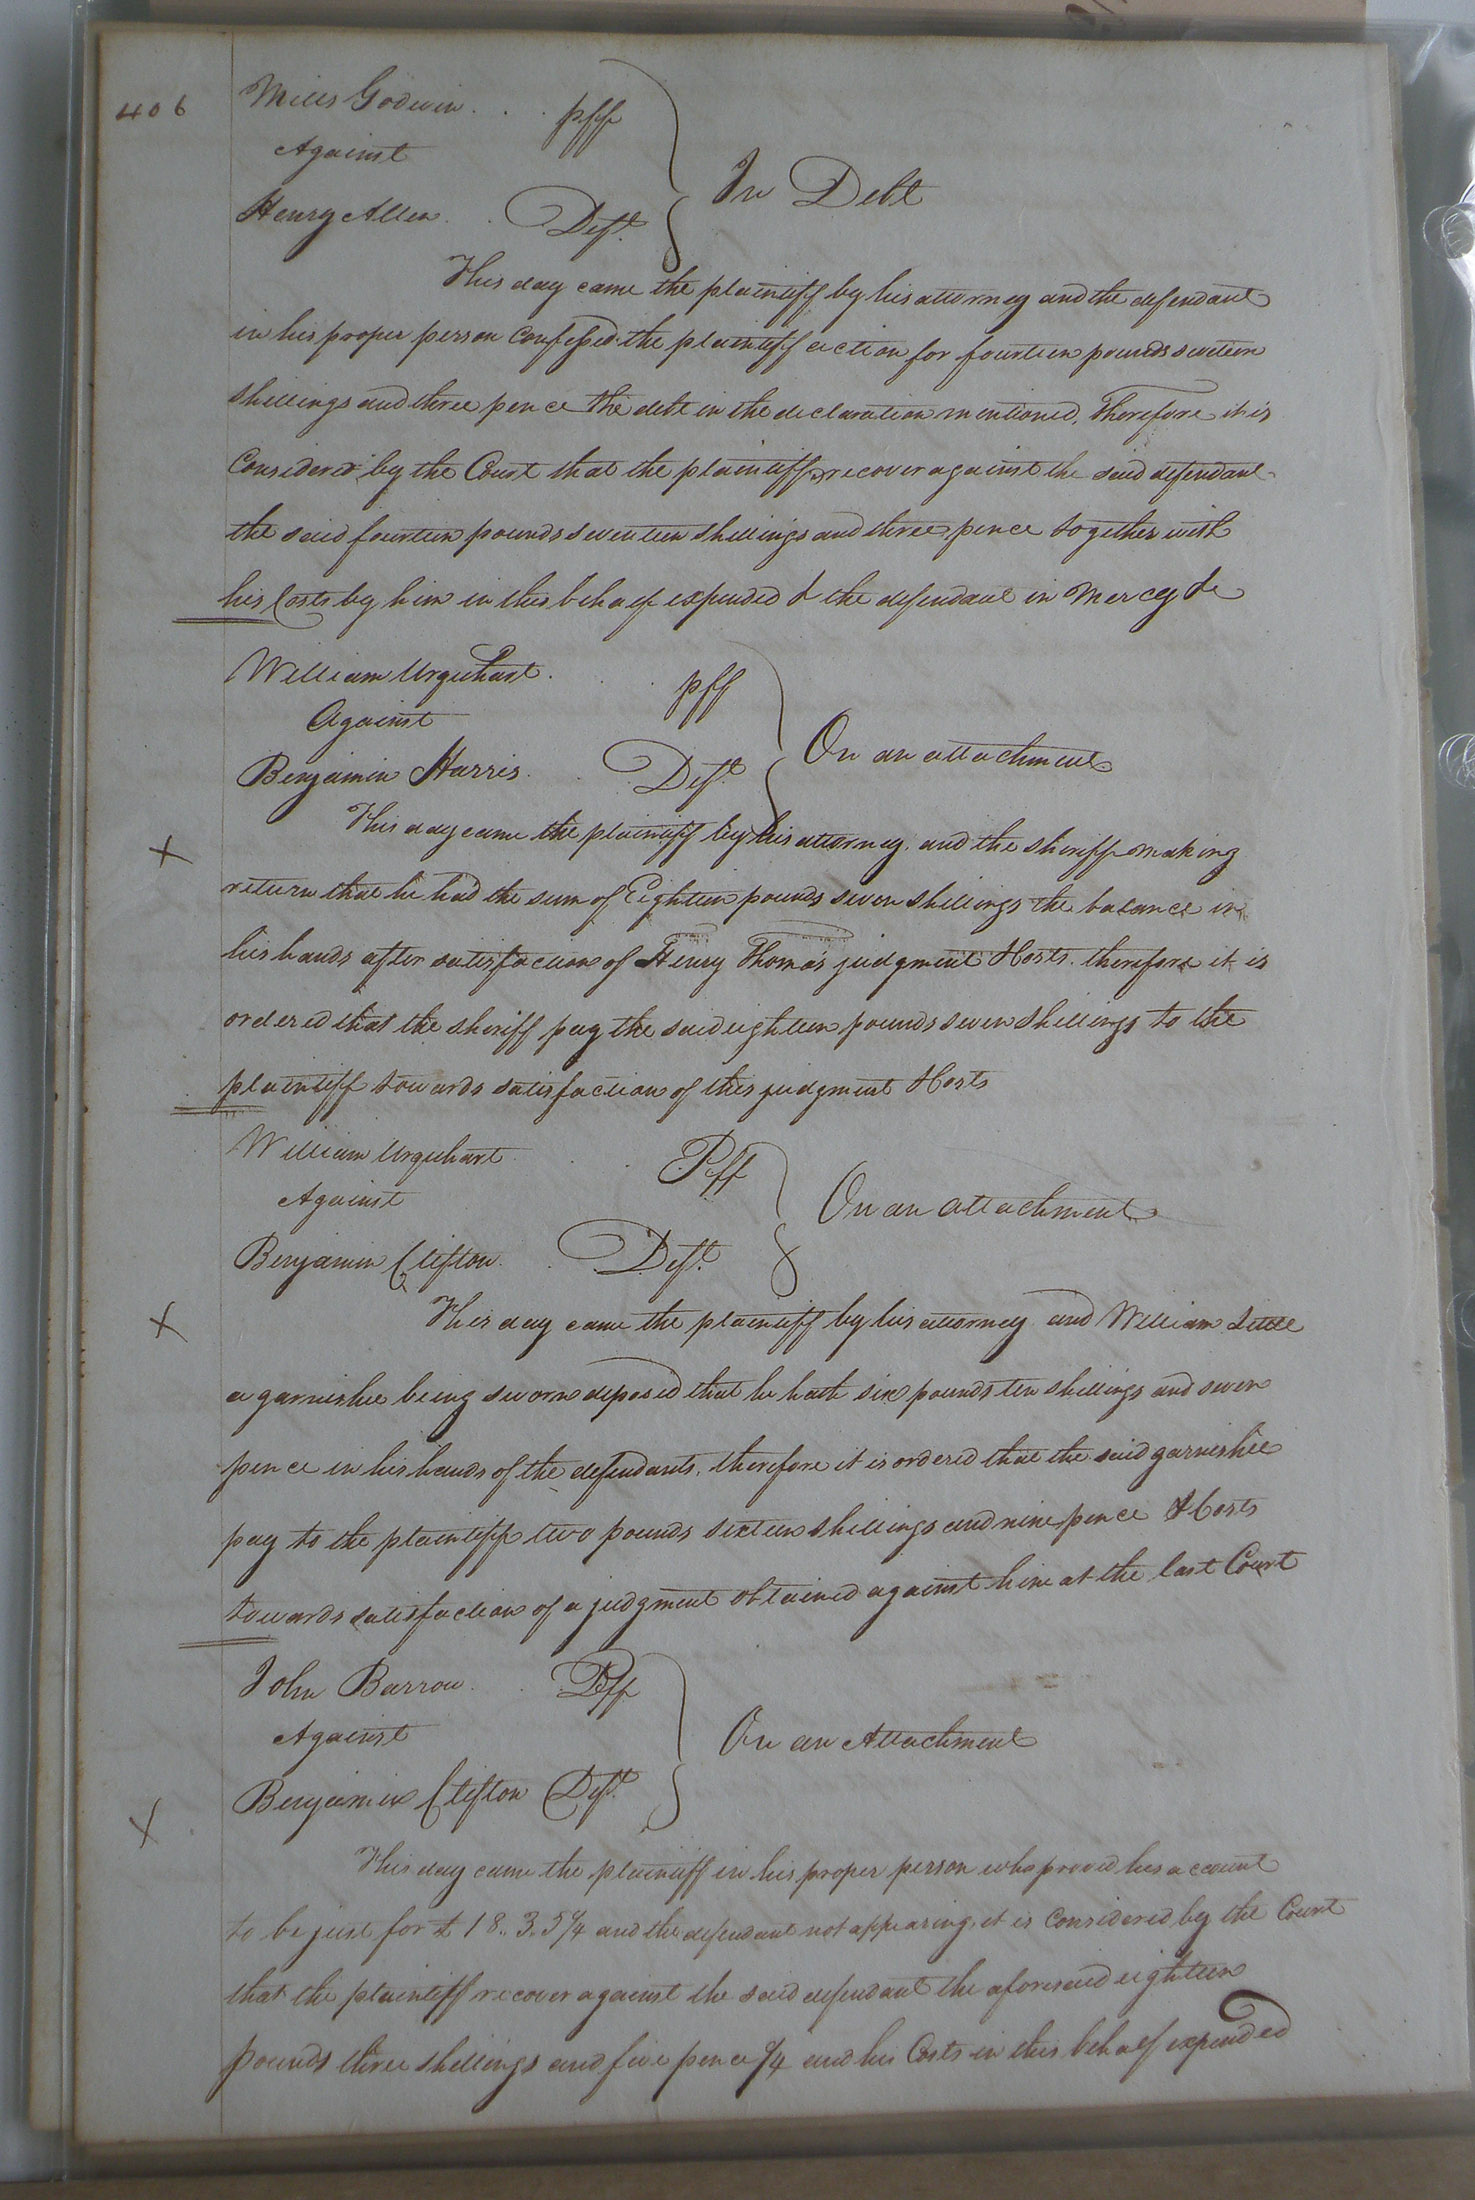 406
Mills Godwin . . . pff
Against
Henry Allen . . Deft.
In Debt
This day came the plaintiff by his attorney and the defendant
in his proper person confessed the plaintiff action for fourteen pounds seventeen
shillings and three pence the debt in the declaration mentioned, Therefore it is
Considered by the Court that the plaintiff recover against the said defendant
the said fourteen pounds seventeen shillings and three pence together with
his Costs by him in this behalf expended & the defendant in Mercy &c
William Urquhart . . . pff
Against
Benjamin Harris . . Deft.
On an attachment
X
This day came the plaintiff by his attorney, and the sheriff making
return that he had the sum of Eighteen pounds seven shillings the balance in
his hands after satisfaction of Henry Thomas judgment & Costs. therefore it is
ordered that the sheriff pay the said eighteen pounds seven shillings to the
plaintiff towards satisfaction of this judgment & Costs
William Urquhart . . Pff
Against
Benjamin Clifton . . Deft.
On an attachment
X
This day came the plaintiff by his attorney and William Little
a garnishee being sworn deposed that he hath six pounds ten shillings and seven
pence in his hands of the defendants, therefore it is ordered that the said garnishee
pay to the plaintiff two pounds sixteen shillings and nine pence & Costs
towards satisfaction of a judgment obtained against him at the last Court
John Barrow . . Pff
Against
Benjamin Clifton Deft.
On an Attachment
X
This day came the plaintiff in his proper person who proved his account
to be just for £ 18.. 3. 5 1/4 and the defendant not appearing, it is Considered by the Court
that the plaintiff recover against the said defendant the aforesaid eighteen
pounds three shillings and five pence 1/4 and his Costs in this behalf expended